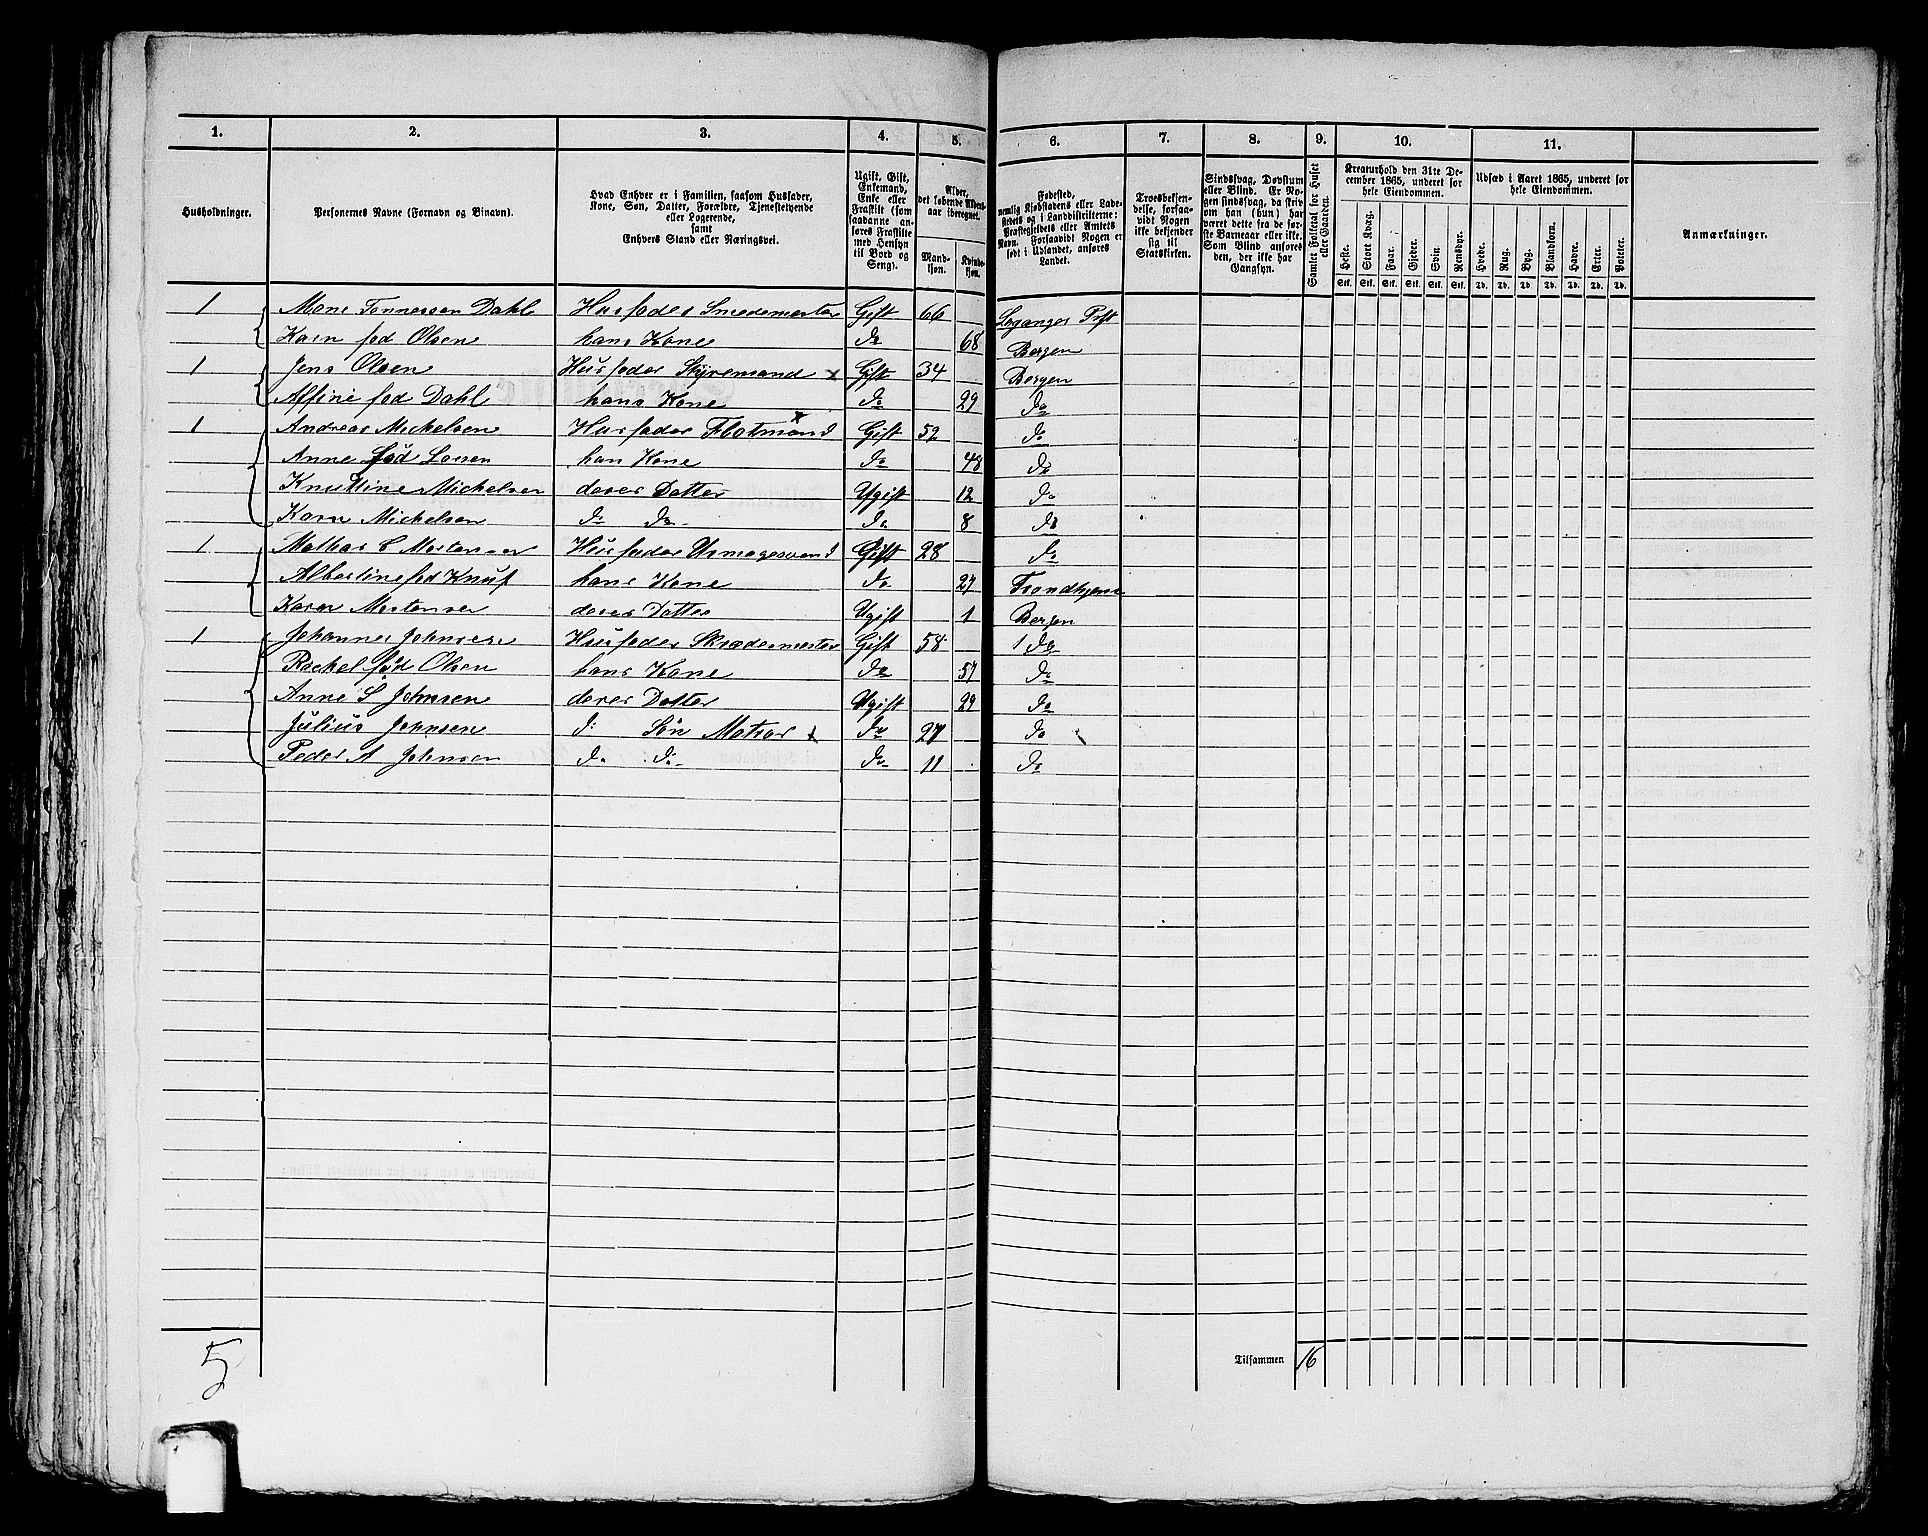 1. 2. 3. 4. 5. 6. 7. 8. 9. 10. 11.
Husholdninger.
Personernes Navne (Fornavn og Binavn).
Hvad Enhver er i Familien, saasom Husfader,
Kone, Søn, Datter, Forældre, Tjenestetyende
eller Logerende,
samt
Enhvers Stand eller Næringsvei.
Ugift, Gift,
Enkemand,
Enke eller
Fraskilt (som
saadanne an-
føres Fraskilte
med Hensyn
til Bord og
Seng).
Alder,
det løbende Alders-
aar iberegnet.
Mand-
kjøn.
Kvinde-
kjøn.
Fødested,
nemlig Kjøbstadens eller Lade-
stedets og i Landdistrikterne:
Præstegjeldets eller Amtets
Navn. Forsaavidt Nogen er
født i Udlandet, anføres
Landet.
Troesbekjen-
delse, forsaa-
vidt Nogen
ikke bekjender
sig til
Statskirken.
Sindssvag, Døvstum
eller Blind. Er No-
gen sindssvag, da skriv
om han (hun) har
været dette fra de før-
ste Barneaar eller ikke.
Som Blind anføres
den, der ikke har
Gangsyn.
Samlet Folketal for Huset
eller Gaarden.
Kreaturhold den 31te De-
cember 1865, underet for
hele Eiendommen.
Heste. Stort Kvæg. Faar. Gjeder. Svin. Rensdyr.
Stk. Stk. Stk. Stk. Stk. Stk.
Udsæd i Aaret 1865, underet for
hele Eiendommen.
Hvede. Rug. Byg. Blandkorn. Havre. Erter. Poteter.
Td. Td. Td. Td. Td. Td. Td.
Anmærkninger.
1 Mons Tønnessen Dahl Husfader Smedemester Gift 66 Leganger Prst
Karn fød Olsen hans Kone do 68 Bergen
1 Jens Olsen Husfader Styremand x Gift 34 Bergen
Affine fød Dahl hans Kone do 29 do
1 Andreas Mickelsen Husfader Flotmand x Gift 52 do
Anne fød Larsen han Kone do 48 do
Knutline Mickelsen deres Datter Ugift 12 do
Karn Mickelsen do do 8 do
1 Mathias C Mortensen Husfader Urmagersvend Gift 28 do
Albertine fød Knuf hans Kone do 27 Trondhjem
Karn Mortensen deres Datter Ugift 1 Bergen
1 Johannes Johnsen Husfader Skrædermester Gift 58 1 do
Rachel fød Olsen hans Kone do 57 do
Anne S Johnsen deres Datter Ugift 29 do
Julius Johnsen d: Søn Matros x do 27 do
Peder A Johnsen do do do 11 do
5 Tilsammen 16